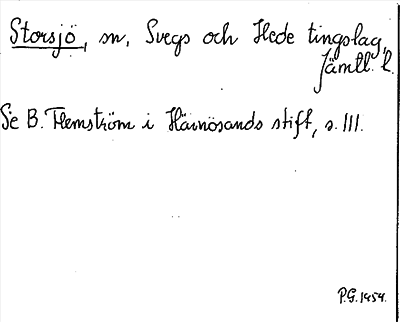 Storsjö, sn, Svegs och Hede tingslag,
Jämtl. l.
Se B. Flemström i Härnösands stift, s. III.
P.G. 1954.